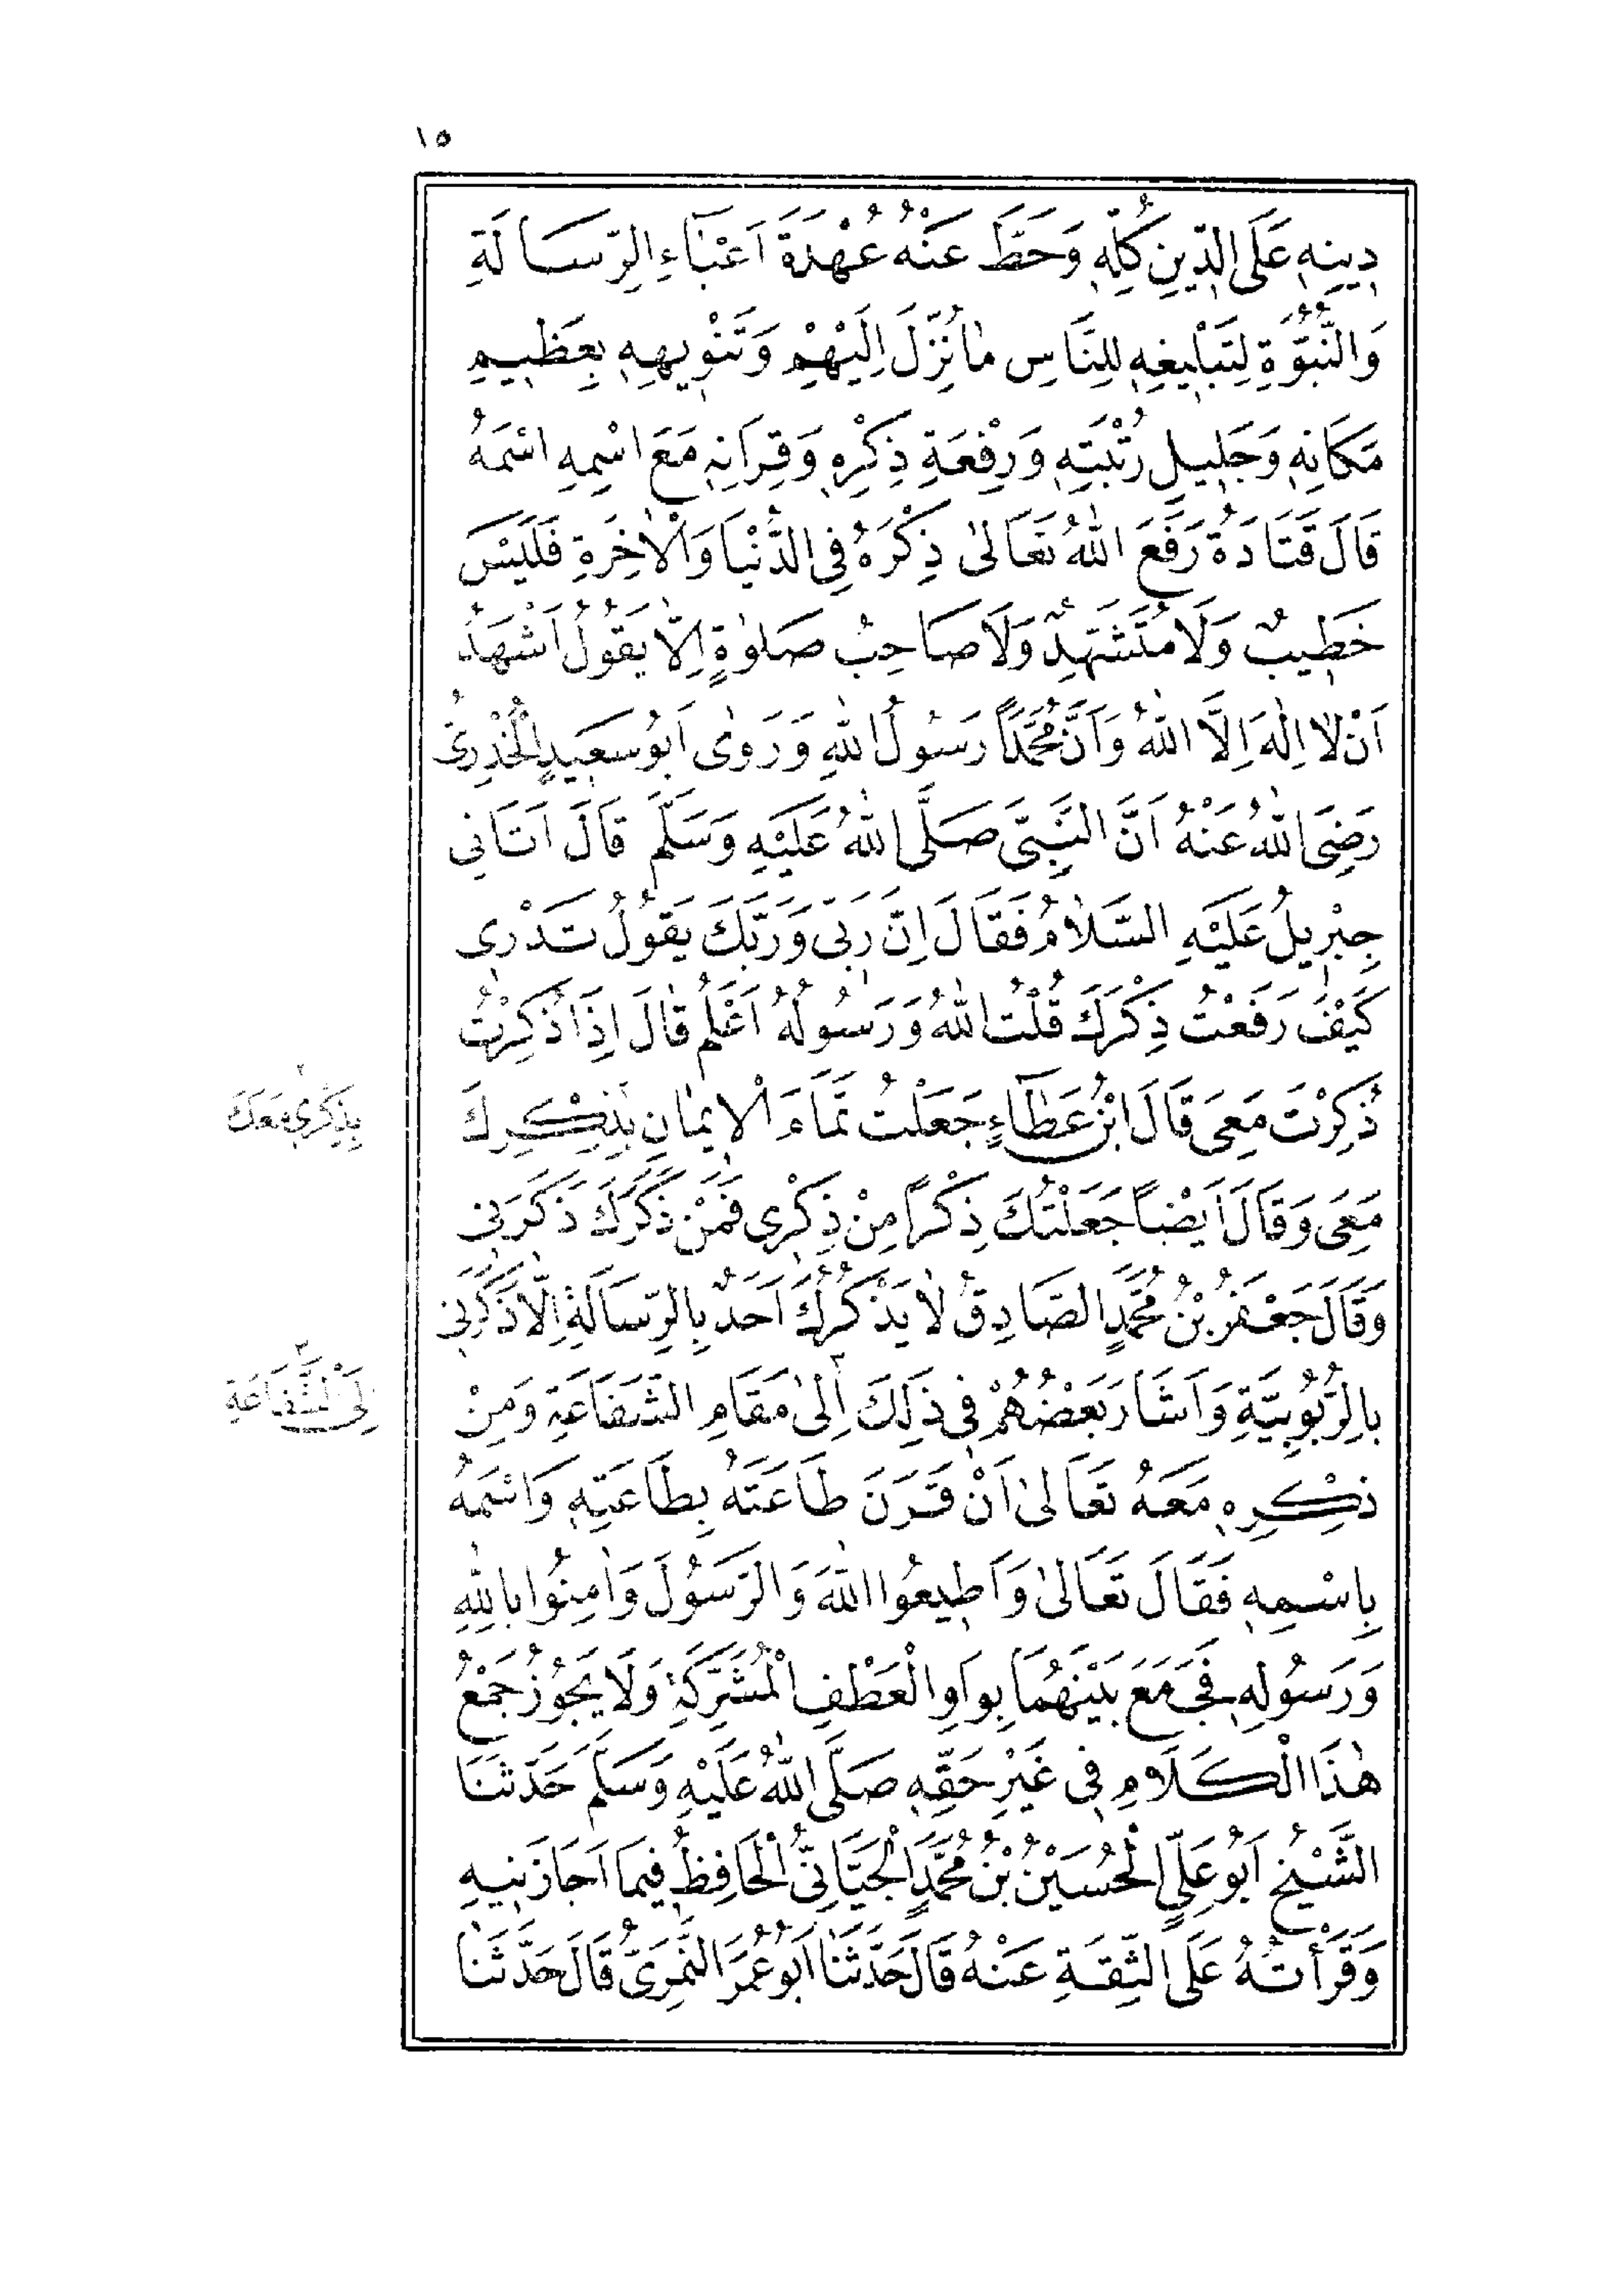 ١٥
دِينِهِ عَلَى الدِّينِ كُلِّهِ وَحَطَّ عَنْهُ عُهْدَةَ اَعْبَاءِ الرِّسَالَةِ
وَالنُّبُوَّةِ لِتَبْلِيغِهِ لِلنَّاسِ مَا نُزِّلَ اِلَيْهِمْ وَتَنْوِيهِهِ بِعَظِيمِ
مَكَانِهِ وَجَلِيلِ رُتْبَتِهِ وَرِفْعَةِ ذِكْرِهِ وَقِرَانِهِ مَعَ اسْمِهِ اسْمَهُ
قَالَ قَتَادَةُ رَفَعَ اللهُ تَعَالٰى ذِكْرَهُ فِى الدُّنْيَا وَالْاٰخِرَةِ فَلَيْسَ
خَطِيبٌ وَلَا مُتَشَهِّدٌ وَلَا صَاحِبُ صَلٰوةٍ اِلَّا يَقُولُ اَشْهَدُ
اَنْ لَا اِلٰهَ اِلَّا اللهُ وَاَنَّ مُحَمَّدًا رَسُولُ اللهِ وَرَوٰى اَبُو سَعِيدٍ الْخُدْرِىُّ
رَضِىَ اللهُ عَنْهُ اَنَّ النَّبِىَّ صَلَّى اللهُ عَلَيْهِ وَسَلَّمَ قَالَ اَتَانِى
جِبْرِيلُ عَلَيْهِ السَّلَامُ فَقَالَ اِنَّ رَبِّى وَرَبَّكَ يَقُولُ تَدْرِى
كَيْفَ رَفَعْتُ ذِكْرَكَ قُلْتُ اللهُ وَرَسُولُهُ اَعْلَمُ قَالَ اِذَا ذُكِرْتُ
ذُكِرْتَ مَعِىَ قَالَ ابْنُ عَطَاءٍ جَعَلْتُ تَمَامَ الْاِيمَانِ بِذِكْرِكَ
بِذِكْرِى مَعَكَ
مَعِى وَقَالَ اَيْضًا جَعَلْتُكَ ذِكْرًا مِنْ ذِكْرِى فَمَنْ ذَكَرَكَ ذَكَرَنِى
وَقَالَ جَعْفَرُ بْنُ مُحَمَّدٍ الصَّادِقُ لَا يَذْكُرُكَ اَحَدٌ بِالرِّسَالَةِ اِلَّا ذَكَرَنِى
بِالرُّبُوبِيَّةِ وَاَشَارَ بَعْضُهُمْ فِى ذٰلِكَ اِلٰى مَقَامِ الشَّفَاعَةِ وَمِنْ
اِلَى الشَّفَاعَةِ
ذِكْرِهِ مَعَهُ تَعَالٰى اَنْ قَرَنَ طَاعَتَهُ بِطَاعَتِهِ وَاسْمَهُ
بِاسْمِهِ فَقَالَ تَعَالٰى وَاَطِيعُوا اللهَ وَالرَّسُولَ وَاٰمِنُوا بِاللهِ
وَرَسُولِهِ فَجَمَعَ بَيْنَهُمَا بِوَاوِ الْعَطْفِ الْمُشَرِّكَةِ وَلَا يَجُوزُ جَمْعُ
هٰذَا الْكَلَامِ فِى غَيْرِ حَقِّهِ صَلَّى اللهُ عَلَيْهِ وَسَلَّمَ حَدَّثَنَا
الشَّيْخُ اَبُو عَلِىٍّ الْحُسَيْنُ بْنُ مُحَمَّدٍ الْجَيَّانِىُّ الْحَافِظُ فِيمَا اَجَازَنِيهِ
وَقَرَأْتُهُ عَلَى الثِّقَةِ عَنْهُ قَالَ حَدَّثَنَا اَبُو عُمَرَ النَّمَرِىُّ قَالَ حَدَّثَنَا